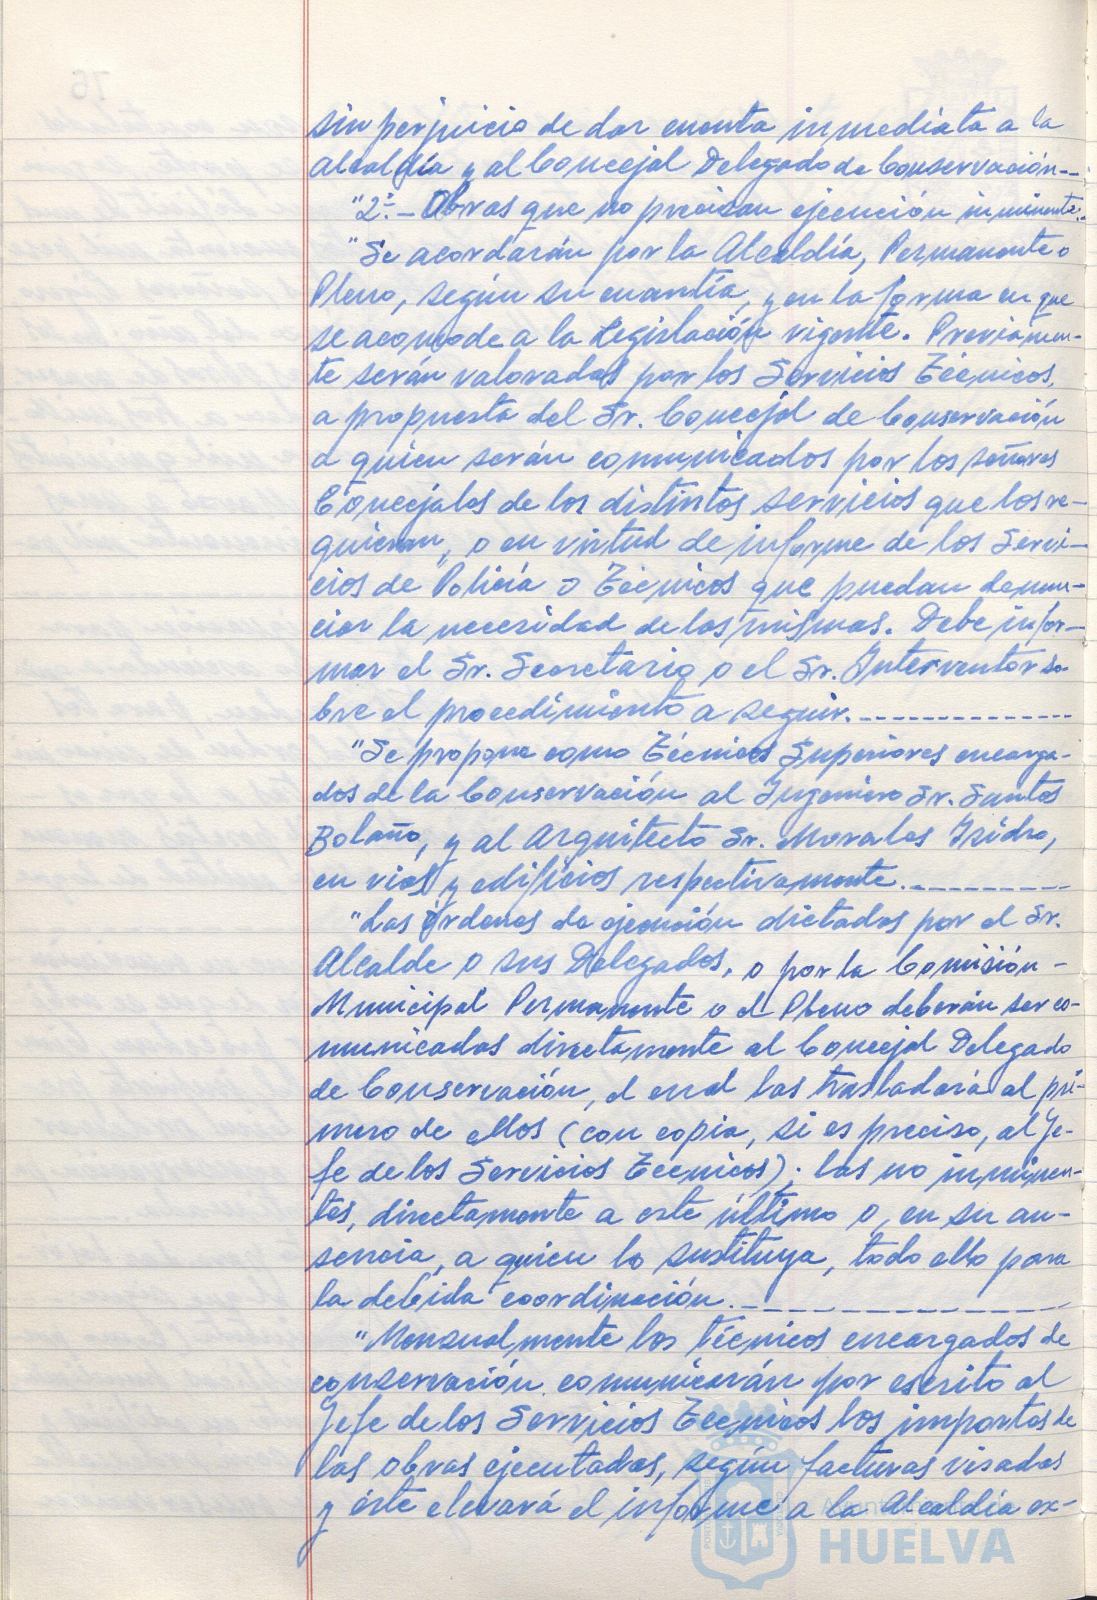 sin perjuicio de dar cuenta inmediata a la
Alcaldía y al Concejal Delegado de Conservación--
"2ª.- Obras que no precisan ejecución inminente.-
"Se acordarán por la Alcaldía, Permanente o
Pleno, según su cuantía, y en la forma en que
se acomode a la Legislación vigente. Previamen-
te serán valoradas por los Servicios Técnicos,
a propuesta del Sr. Concejal de Conservación
a quien serán comunicados por los señores
Concejales de los distintos servicios que los re-
quieran, o en virtud de informe de los Servi-
cios de Policía o Técnicos que puedan denun-
ciar la necesidad de las mismas. Debe infor-
mar el Sr. Secretario o el Sr. Interventor so-
bre el procedimiento a seguir.--------------
"Se propone como Técnicos Superiores encarga-
dos de la Conservación al Ingeniero Sr. Santos
Bolaño, y al Arquitecto Sr. Morales Izidro,
en vias y edificios respectivamente.----------
"Las órdenes de ejecución dictadas por el Sr.
Alcalde o sus Delegados, o por la Comisión-
Municipal Permanente o el Pleno deberán ser co-
municadas directamente al Concejal Delegado
de Conservación, el cual las trasladará al pri-
mero de ellos (con copia, si es preciso, al Je-
fe de los Servicios Técnicos); las no inminen-
tes, directamente a este último o, en su au-
sencia, a quien lo sustituya, todo ello para
la debida coordinación.----------------
"Mensualmente los técnicos encargados de
conservación comunicarán por escrito al
Jefe de los Servicios Técnicos los importes de
las obras ejecutadas, según facturas visadas
y éste elevará el informe a la Alcaldía ex-
HUELVA